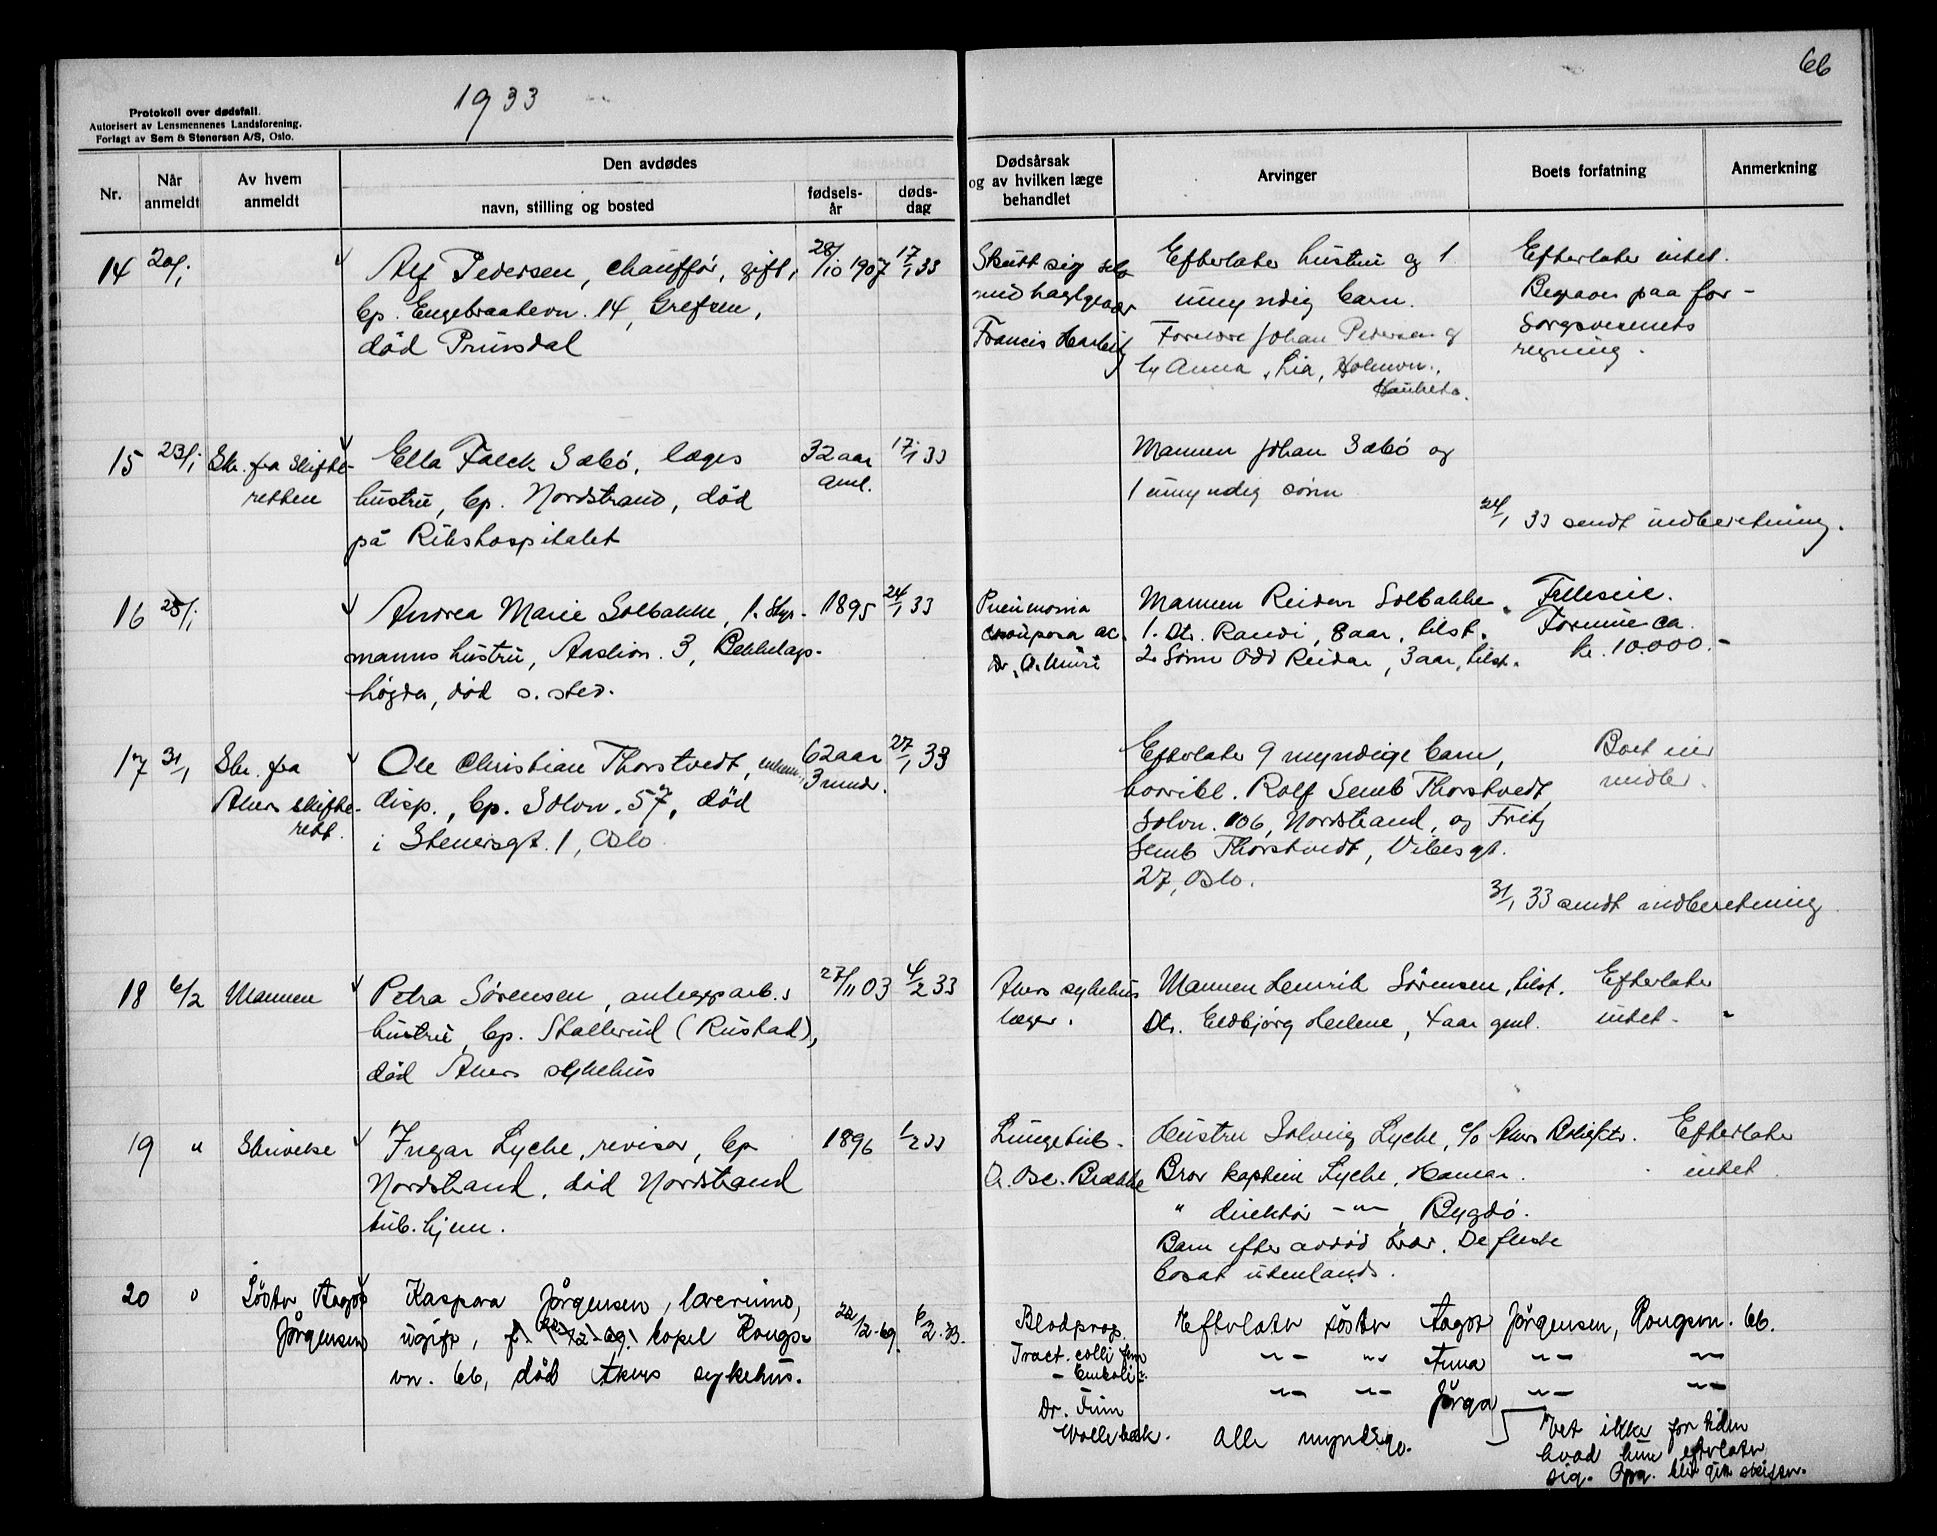 66
1933
Protokoll over dødsfall.
Autorisert av Lensmennenes Landsforening.
Forlagt av Sem & Stenersen A/S, Oslo.
Nr.
Når anmeldt
Av hvem anmeldt
Den avdødes
navn, stilling og bosted
fødsels-år
døds-dag
Dødsårsak og av hvilken læge behandlet
Arvinger
Boets forfatning
Anmerkning
14 20/1
Alf Pedersen, chauffør, gift,
bp. Engebraatevn. 14, Grefsen,
død Prinsdal
28/10 1907 17/1 33
Skutt sig selv
med haglgevær
Francis Harbitz
Efterlater hustru og 1
umyndig barn.
Foreldre Johan Pedersen og
h Anna, Lia, Holmvn.,
Hauketo.
Efterlater intet.
Begraves paa for-
sorgsvesenets
regning.
15 23/1 Skr. fra Skifte-
retten
Ella Falck Sæbö, læges
hustru, bp. Nordstrand, død
på Rikshospitalet
32 aar
gml.
17/1 33
Mannen Johan Sæbö og
1 umyndig sønn
24/1 33 sendt indberetning.
16 25/1
Andrea Marie Solbakke, 1. Styr-
manns hustru, Aaslivn. 3, Bekkelags-
høgda, død s. sted.
1895 24/1 33
Pneumonia
crouposa ac.
Dr. A.
Mannen Reidar Solbakke.
1. Dtr. Randi, 8 aar, tilst.
2. Sønn Odd Reidar, 3 aar, tilst.
Felleseie.
Formue ca.
kr. 10.000.-
17 31/1 Skr. fra
Akers skifte-
rett.
Ole Christian Thorstvedt, enkem.,
disp., bp. Solvn. 57, død
i Stenersgt. 1, Oslo
62 aar
3 mndr.
27/1 33
Efterlater 9 myndige barn,
hvoribl. Rolf Semb Thorstvedt,
Solvn. 106, Nordstrand, og Fritz
Semb Thorstvedt, Vibesgt.
27, Oslo.
Boet eier
midler.
31/1 33 sendt indberetning
18 6/2 Mannen
Petra Sørensen, anleggsarb.s
hustru, bp. Skallerud (Rustad),
død Akers sykehus
27/11 03 4/2 33
Akers sykehus
læger.
Mannen Henrik Sørensen, tilst.
Dtr. Eldbjørg Helene, 4 aar gml.
Efterlater
intet.
19 " Skrivelse
Ingar Lyche, revisor, bp
Nordstrand, død Nordstrand
tub. hjem.
1896 1/2 33
Lungetub.
O. Brække
Hustru Solveig Lyche, c/o Akers
Bror kaptein Lyche, Hamar.
" direktør -"-, Bygdö.
Barn efter avdød bror. De fleste
bosat utenlands.
Efterlater
intet
20 " Søster Aagot
Jørgensen
Kaspara Jørgensen, lærerinne,
ugift, f. 22/2-69. bopel Kongs-
vn. 66, død Akers sykehus.
22/2-69. 6/2-33.
Blodprop.
Fract. colli fem
- Emboli
Dr.
Efterlater søster Aagot Jørgensen, Kongsvn. 66.
-"- -"- Anna -"- -"-
-"- -"- Jørga -"- -"-
Alle myndige.
Vet ikke for tiden
hvad hun efterlater
sig.